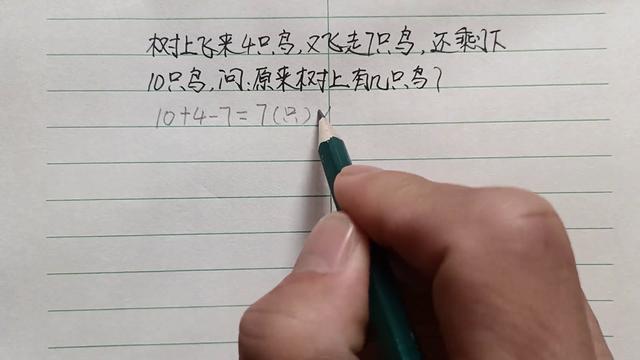 树上飞来4只鸟,又飞走7只鸟,还剩下
10只鸟,问:原来树上有几只鸟?
10+4-7=7(只)